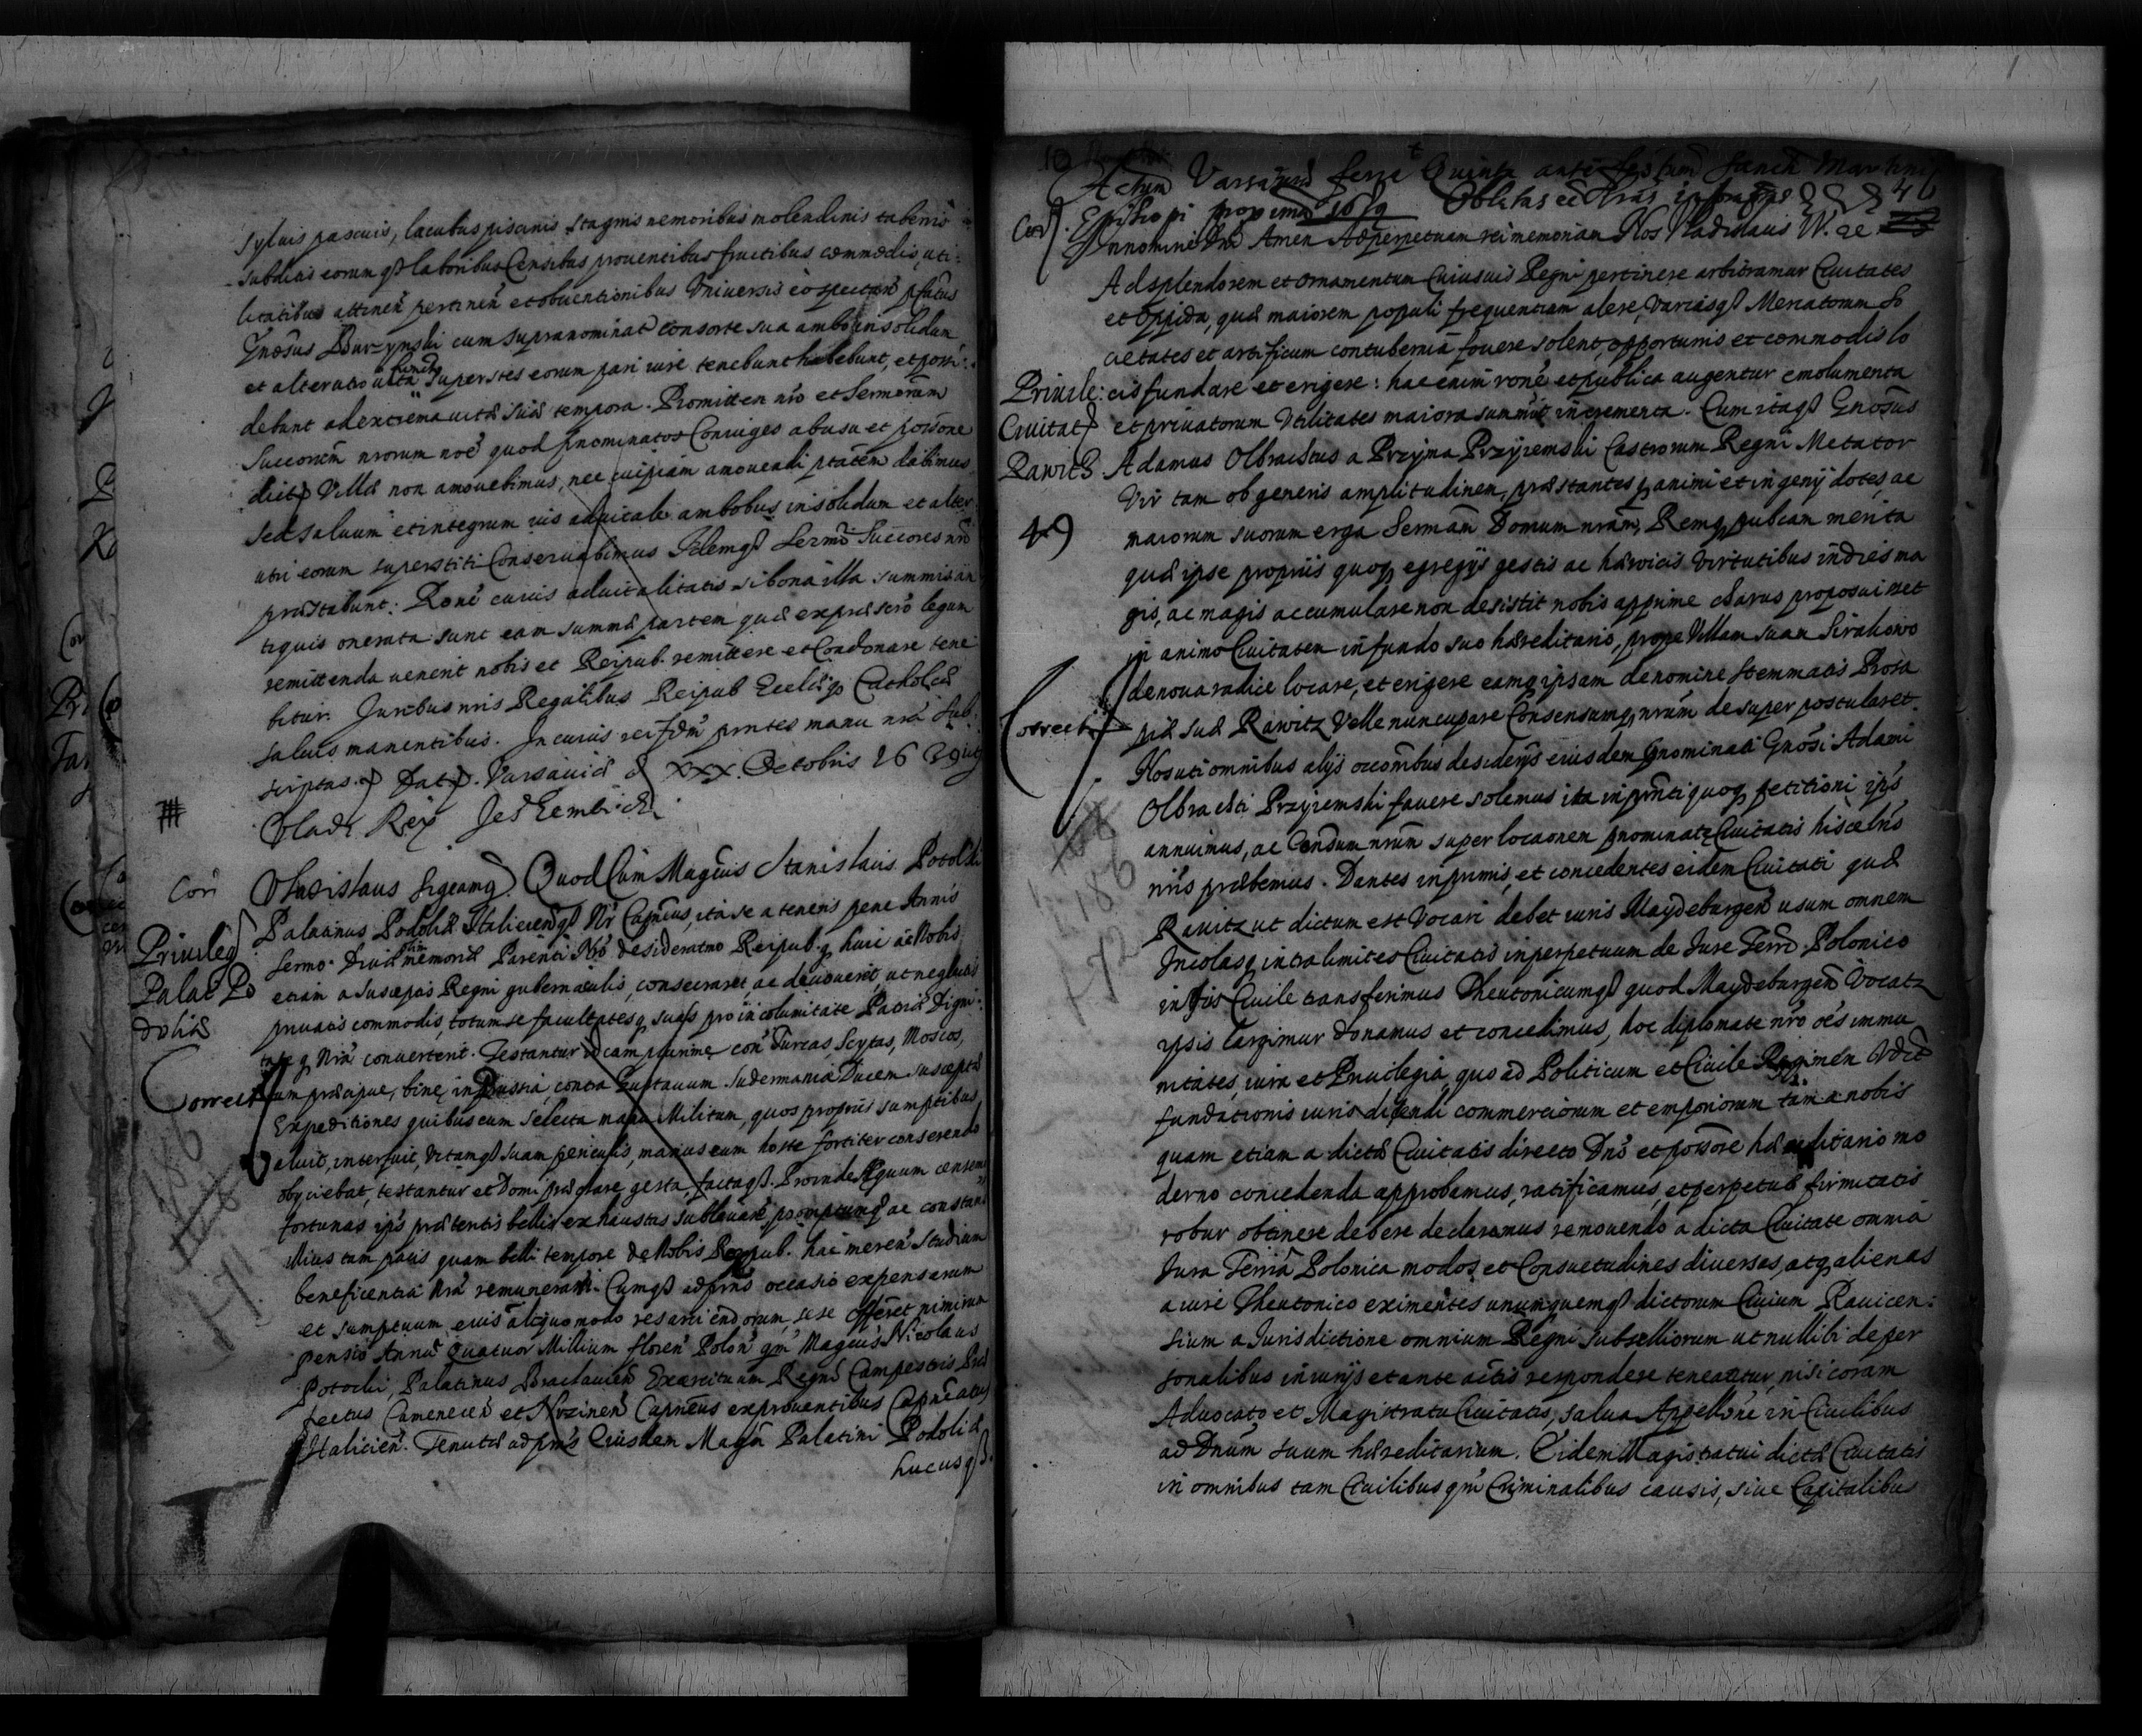 syluis pascuis, lacubus piscinis stagnis nemoribus molendinis tabernis
subditis eorumqꝫ laboribus Censibus prouentibus fructibus commodis, uti:
litatibus attinen̄ pertinen̄ et obuentionibus Vniuersis eo spectan̄ pfatus
Gnosus cum supranominat consorte sua ambo insolidum
et alterutro uita functo superstes eorum pari iure tenebunt habebunt, et possi:
debunt ad extrema uitæ suæ tempora. Promitten nr̄o et Sermorum
Succorum nrorum noē quod pnominatos Coniuges ab usu et possōne
dictæ Villæ non amouebimus, nec cuipiam amouendi ptatem dabimus
sed saluum et integrum ius aduitale ambobus insolidum et alter
utri eorum superstiti Conseruabimus Idemqꝫ Sermi Succores nri
præstabunt: Rone cuius aduitalitatis si bona illa summis an
tiquis onerata sunt eam summæ partem quæ ex præscro legum
remittenda uenerit nobis et Reipub. remittere et Condonare tene
bitur. Juribus nris Regalibus Reipub Eccliæqꝫ Catholicæ
saluis manentibus. In cuius rei fidem pntes manu nra sub:
scriptas. Dat. Varsauiæ d XXX. Octobris 1639
Vlad. Rex
Cor
Vladislaus Sigeamqꝫ. Quod Cum Magcus Stanislaus Potocki
Priuileg
Palatinus Podoliæ Haliciensqꝫ Nr Capneus, ita se a teneris pene Annis
Sermo. Diuæ memoriæ Parenti Nro desideratmo Reipub.qꝫ huic ac Nobis
Palat Po
doliæ
etiam a susceptis Regni gubernaculis, consecraret, ac deuouerit, ut neglectis
priuatis commodis, totum se facultatesqꝫ suas pro incolumitate Patriæ Digni:
tateqꝫ Nra conuerterit. Testantur id cam plurimæ con Turcas, Scytas, Moscos,
Correct
tum præcipue, binæ in Prussia, contra Gustauum Sudermaniæ Ducem susceptæ
Expeditiones quibus cum selecta manu Militum, quos proprijs sumptibus
aluit, interfuit, Vitamqꝫ suam periculis, manus cum hoste fortiter conserendo
obijciebat, testantur et Domi præclare gesta, factaqꝫ. Proinde Æquum censemus
fortunas ips prætentis bellis exhaustas subleuare, promptumqꝫ ac constans
illius tam pacis quam belli tempore de Nobis Repub. hac meren studium
beneficentia Nra remunerari. Cumqꝫ ad pns occasio expensarum
et sumptuum eius aliquo modo resarciendorum, sese offeret nimirum
pensio Annua Quatuor Millium floren Polon qm Magcus Nicolaus
Potocki, Palatinus Braclauien Exercituum Regni Campestris Præ
fectus Camenecen et Nizinen Capneus ex prouentibus Capneatus
Halicien. Tenutæ ad pns Eiusdem Magci Palatini Podoliæ
hucusqꝫ
186
171
Actum Varsauiæ feria Quinta ante festum Sancti Martini
46
Cor
Episcopi proxima 1639 Oblatas ee Lras infrascras
In nomine Dni Amen Ad perpetuam rei memoriam Nos Vladislaus IV. ac
Ad splendorem et ornamentum Cuiusuis Regni pertinere arbitramur Ciuitates
et oppida, quæ maiorem populi frequentiam alere, Variasqꝫ Mercatorum So
cietates et artificum contubernia fouere solent, opportunis et commodis lo
Priuile:
cis fundare et erigere: hac enim rone et publica augentur emolumenta
Ciuitat
et priuatorum Vtilitates maiora summut incrementa. Cum itaqꝫ Gnosus
Rawicz
Adamus Olbrachtus a Przyma Przyiemski Castrorum Regni Metator
Vir tam ob generis amplitudinem, præstantesqꝫ animi et ingenij dotes, ac
49
maiorum suorum erga Sermam Domum nram, Remqꝫ pubcam merita
quæ ipse proprijs quoqꝫ egregijs gestis ac hæroicis Virtutibus indies ma
gis, ac magis accumulare non desistit nobis apprime charus proposuisset
in animo Ciuitatem in fundo suo hæreditario, prope Villam suam Sirakowo
de noua radice locare, et erigere eamqꝫ ipsam de nomine stemmatis Prosa
Correct
piæ suæ Rawitz Velle nuncupare Consensumqꝫ nrum desuper postularet.
Nos uti omnibus alijs occonibus desiderijs eiusdem pnominati Gnosi Adami
Olbrachti Przyiemski fauere solemus ita in pnti quoqꝫ petitioni ips
annuimus, ac Consensum nrum super locaonem pnominatæ Ciuitatis hisce lris
nris præbemus. Dantes inprimis, et concedentes eidem Ciuitati quæ
Rauitz ut dictum est Vocari debet iuris Maydeburgen usum omnem
Incolasqꝫ intra limites Ciuitatis in perpetuum de Jure Terro Polonico
in Jus Ciuile transferimus Theutonicumqꝫ quod Maydeburgen Vocatr
ipsis largimur donamus et concedimus, hoc diplomate nro oēs immu
nitates, iura et Priuilegia, quo ad Politicum et Ciuile Regimen Vdict
fundationis iuris dicendi commerciorum et emporiorum tam a nobis
quam etiam a dictæ Ciuitatis directo Dno et possore hæreditario mo
derno concedenda approbamus, ratificamus, et perpetuæ firmitatis
robur obtinere debere declaramus remouendo a dicta Ciuitate omnia
Jura Terria Polonica modos, et Consuetudines diuersas, atqꝫ alienas
a iure Theutonico eximentes unumquemqꝫ dictorum Ciuium Rauicen:
sium a Jurisdictione omnium Regni subselliorum ut nullibi de per
sonalibus iniurijs et ante actis respondere teneantur, nisi coram
Aduocato et Magistratu Ciuitatis, salua Appellōne in Ciuilibus
ad Dnum suum hæreditarium. Eidem Magistratui dictæ Ciuitatis
in omnibus tam Ciuilibus qm Criminalibus causis, siue Capitalibus
186
172